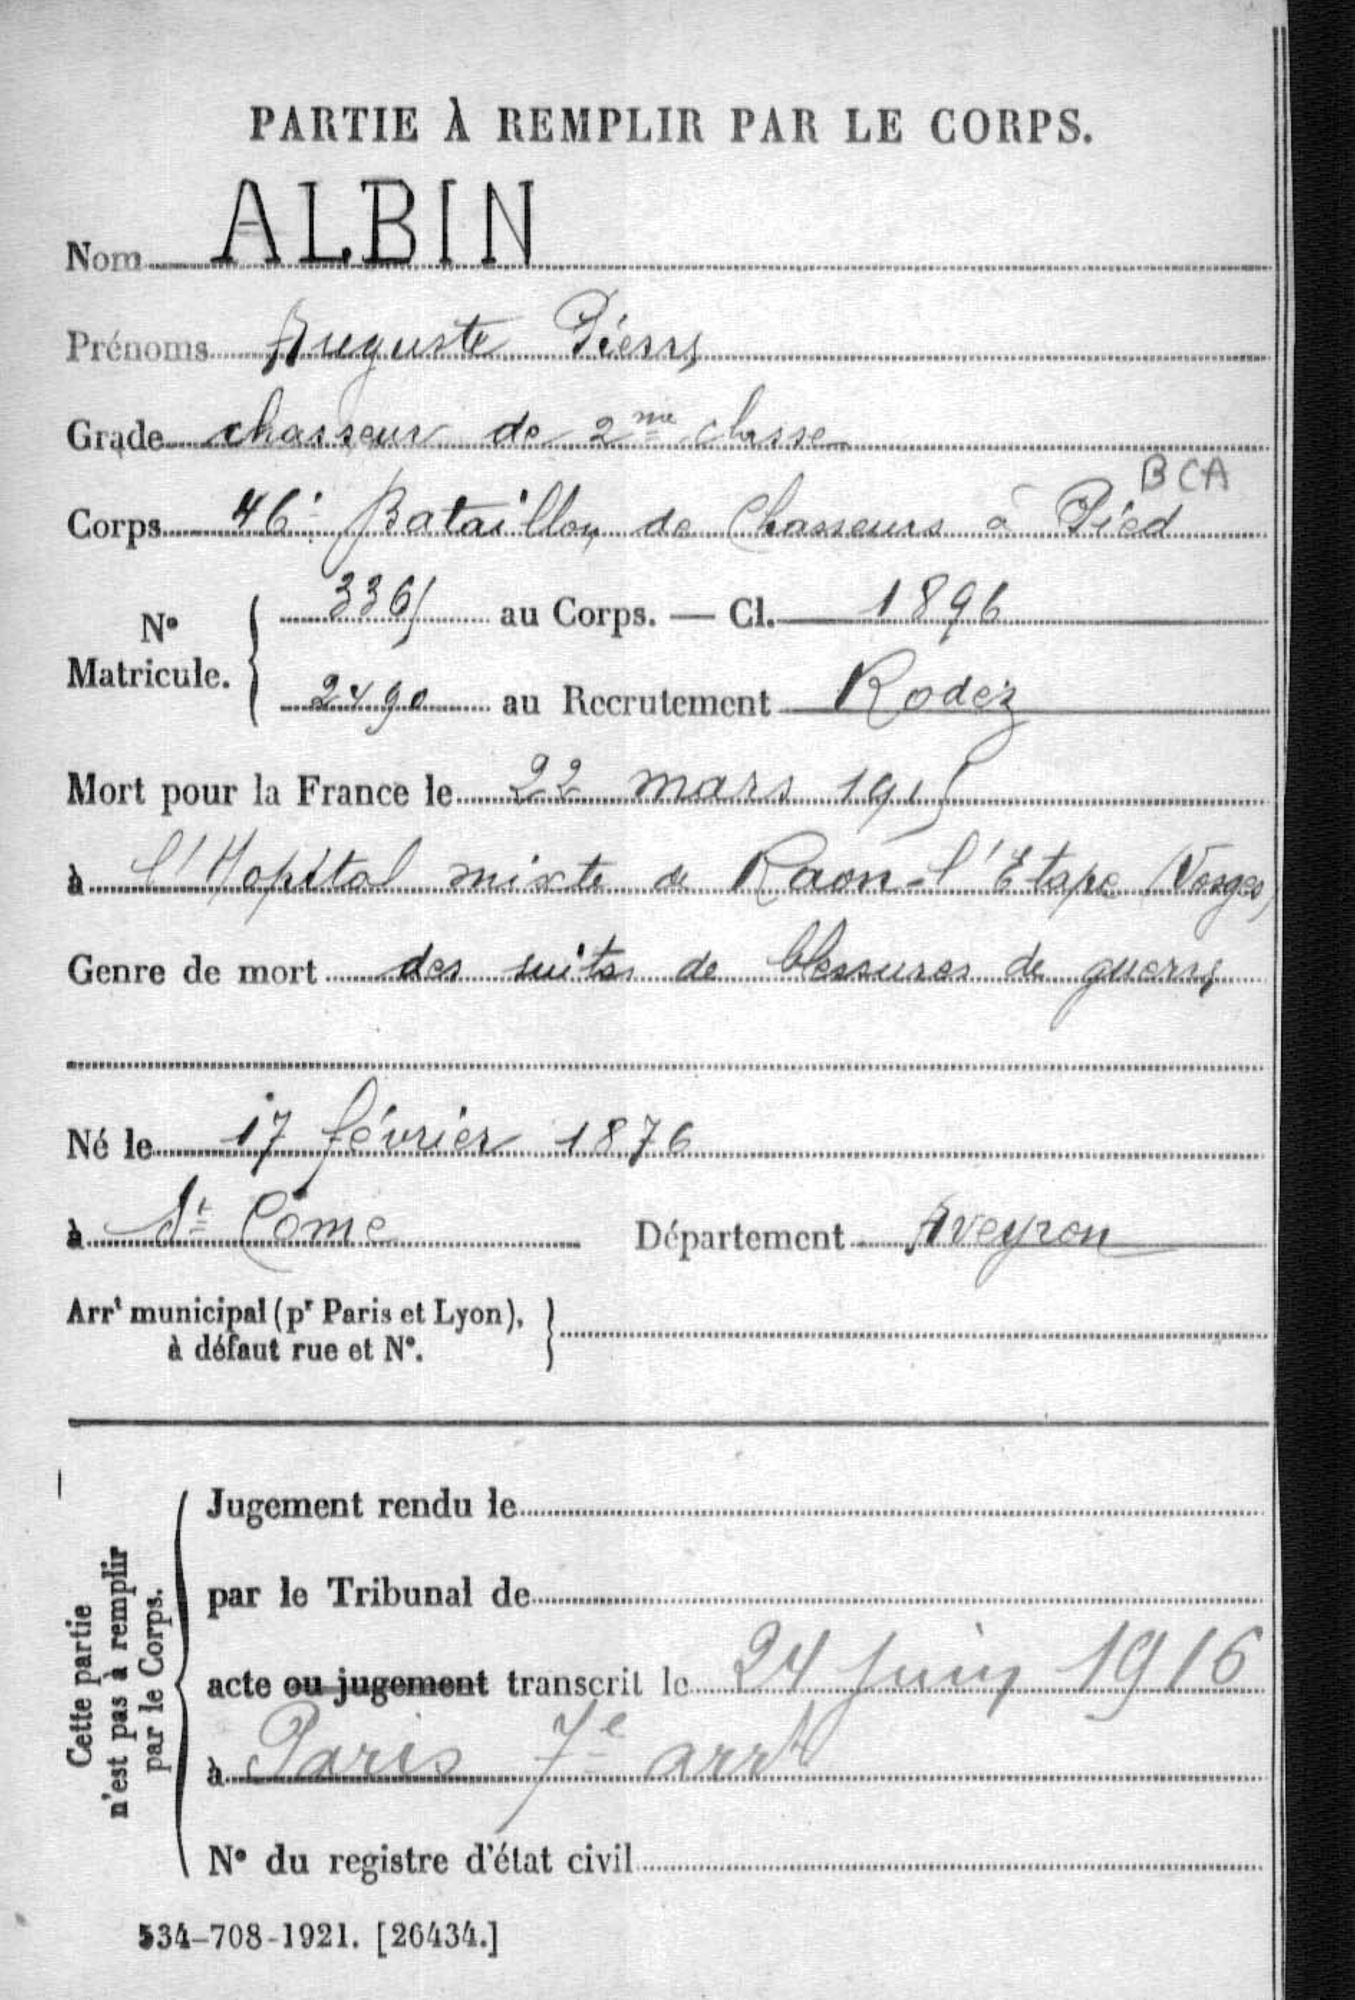 PARTIE À REMPLIR PAR LE CORPS.
Nom ALBIN
Prénoms Auguste Pierre
Grade chasseur de 2me classe
BCA
Corps 46e Bataillon de Chasseurs à Pied
No Matricule. { 3365 au Corps. — Cl. 1896
2490 au Recrutement Rodez
Mort pour la France le 22 mars 1915
à l'Hopital mixte de Raon-l'Etape (Vosges)
Genre de mort des suites de blessures de guerre
Né le 17 février 1876
à St Côme Département Aveyron
Arrt municipal (pr Paris et Lyon), à défaut rue et No. }
Cette partie n'est pas à remplir par le Corps. {
Jugement rendu le
par le Tribunal de
acte ou jugement transcrit le 24 juin 1916
à Paris 7e arrt
No du registre d'état civil
534-708-1921. [26434.]